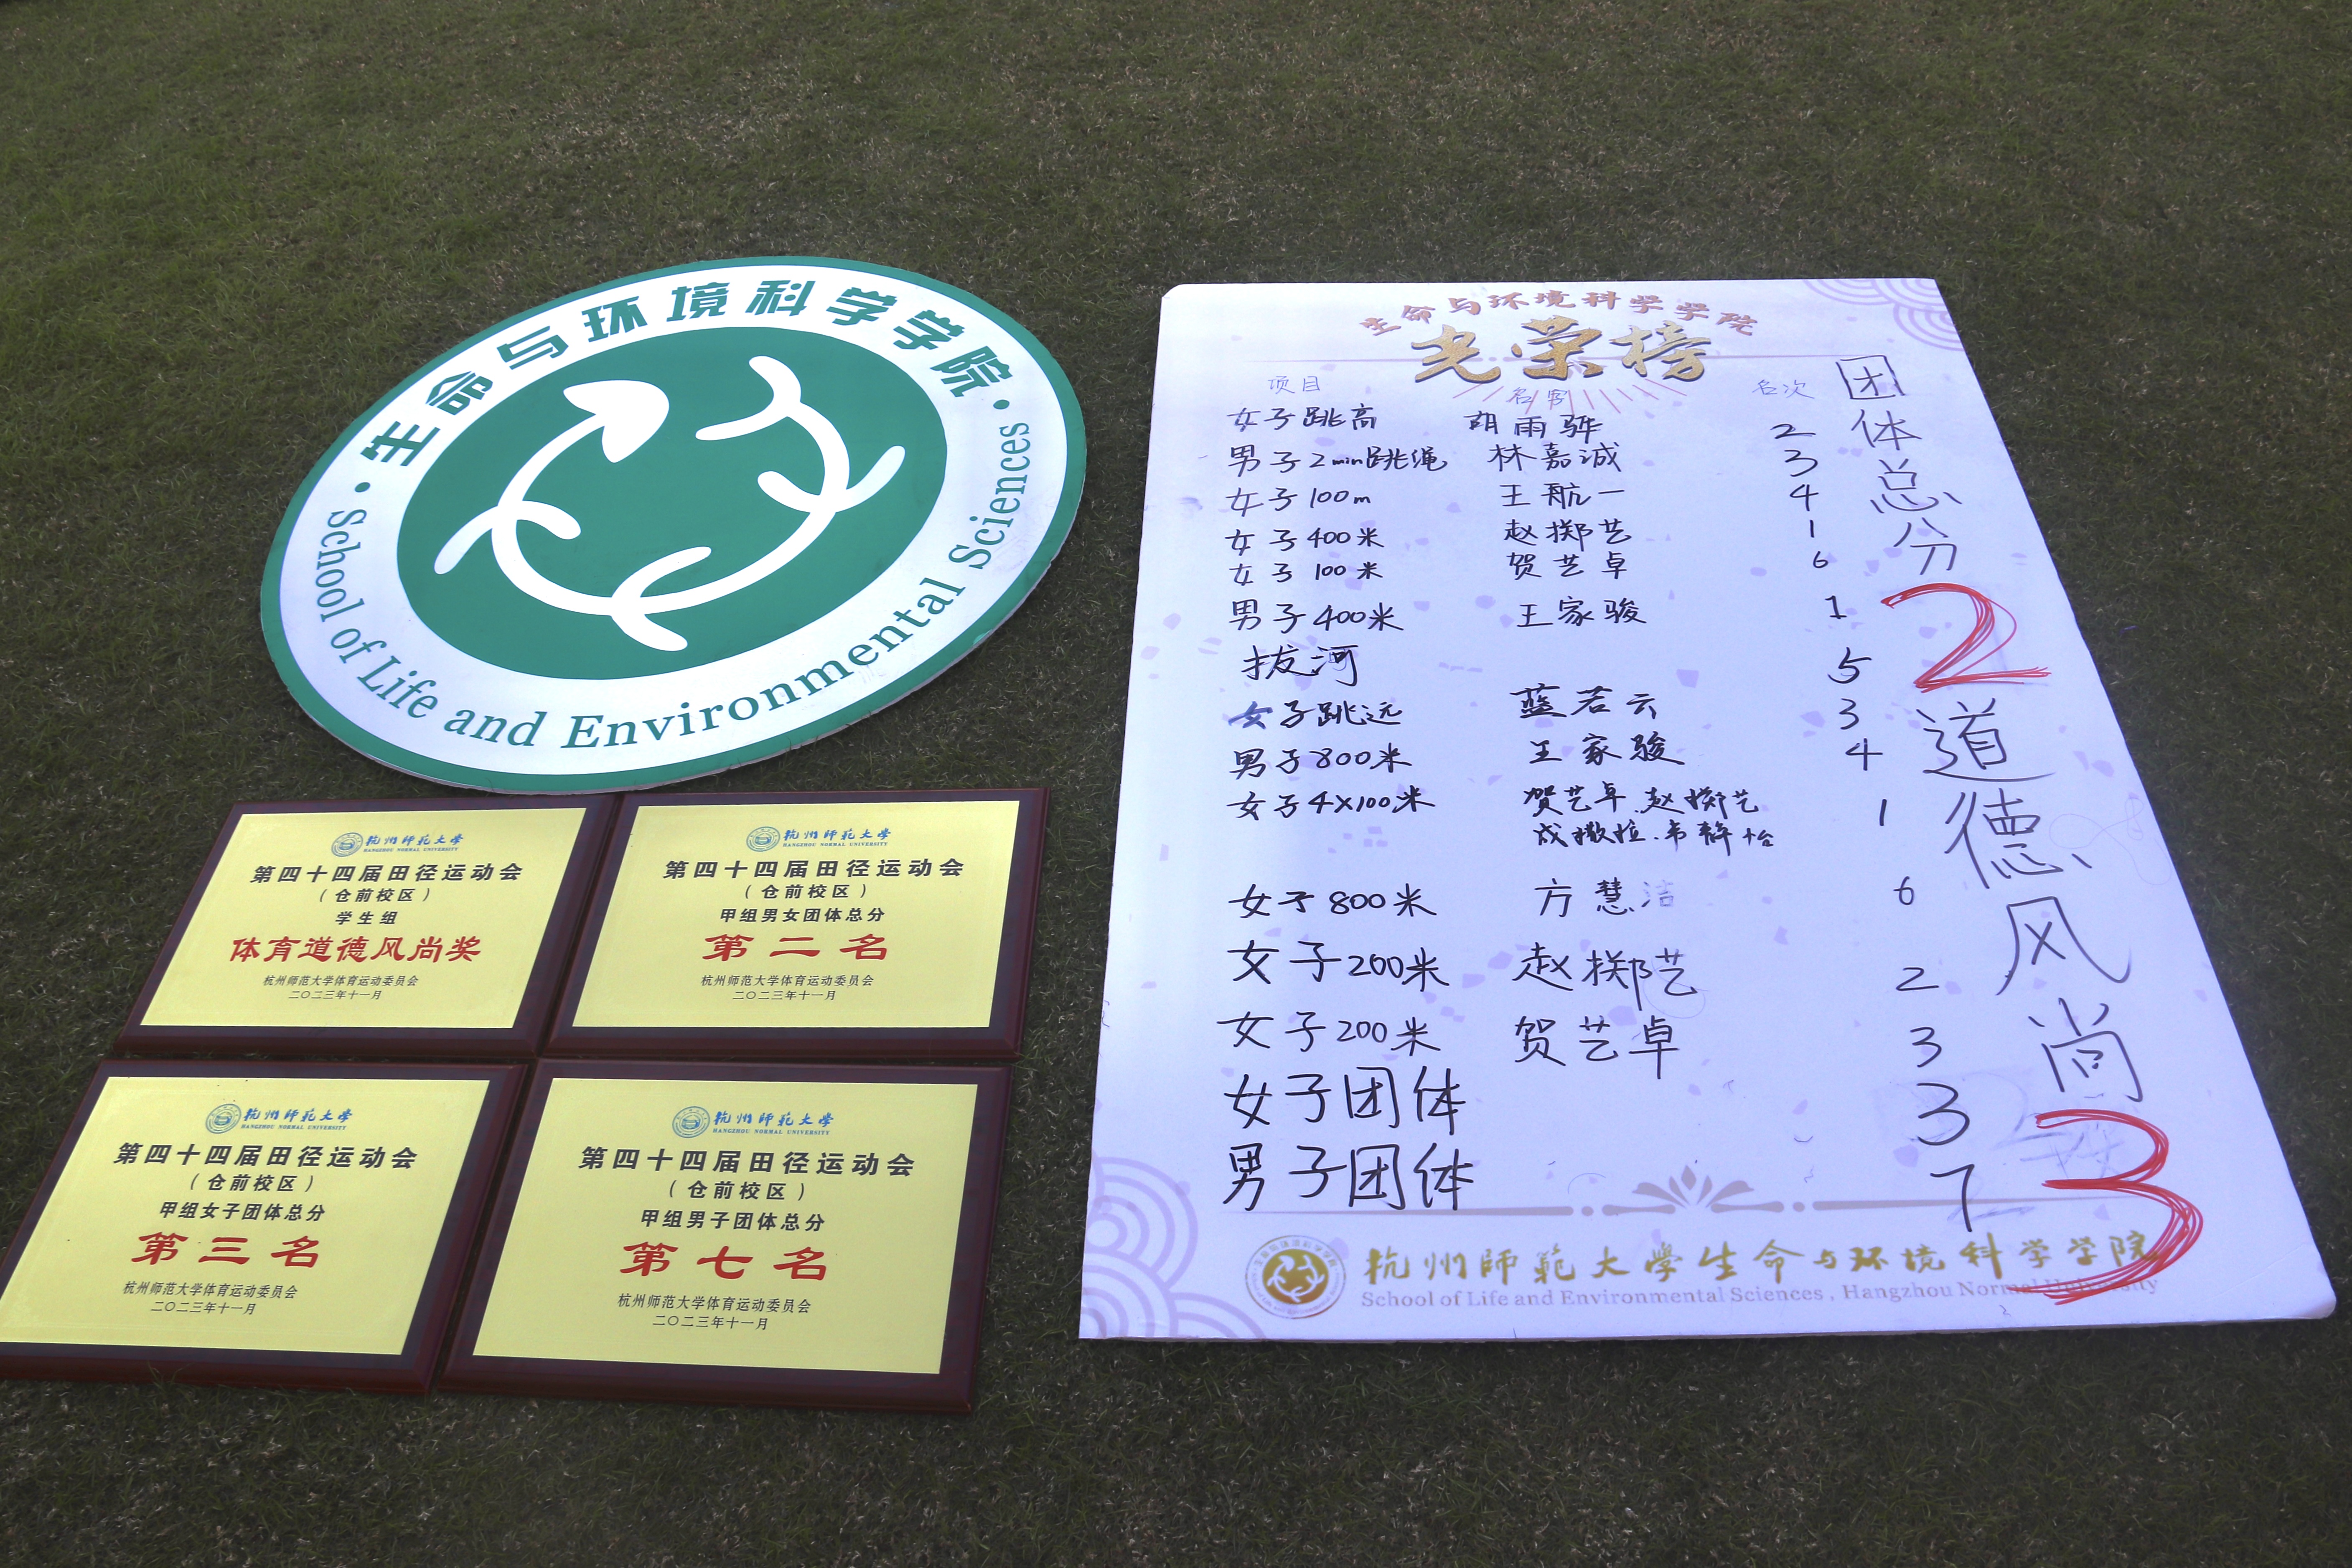 ·生命与环境科学学院·
School of Life and Environmental Sciences
杭州师范大学
HANGZHOU NORMAL UNIVERSITY
第四十四届田径运动会
（仓前校区）
学生组
体育道德风尚奖
杭州师范大学体育运动委员会
二〇二三年十一月
杭州师范大学
HANGZHOU NORMAL UNIVERSITY
第四十四届田径运动会
（仓前校区）
甲组男女团体总分
第二名
杭州师范大学体育运动委员会
二〇二三年十一月
杭州师范大学
HANGZHOU NORMAL UNIVERSITY
第四十四届田径运动会
（仓前校区）
甲组女子团体总分
第三名
杭州师范大学体育运动委员会
二〇二三年十一月
杭州师范大学
HANGZHOU NORMAL UNIVERSITY
第四十四届田径运动会
（仓前校区）
甲组男子团体总分
第七名
杭州师范大学体育运动委员会
二〇二三年十一月
生命与环境科学学院
光荣榜
项目 名字 名次
女子跳高 胡雨 2
男子2min跳绳 林嘉诚 3
女子100m 王航一 4
女子400米 赵掷艺 1
女子100米 贺艺卓 6
男子400米 王家骏 1
拔河 5
女子跳远 蓝若云 3
男子800米 王家骏 4
女子4×100米 贺艺卓.赵掷艺 1
韦静怡
女子800米 方慧洁 6
女子200米 赵掷艺 2
女子200米 贺艺卓 3
女子团体 3
男子团体 7
团体总分
2
道德风尚
3
杭州師範大学生命与环境科学学院
School of Life and Environmental Sciences , Hangzhou Normal University